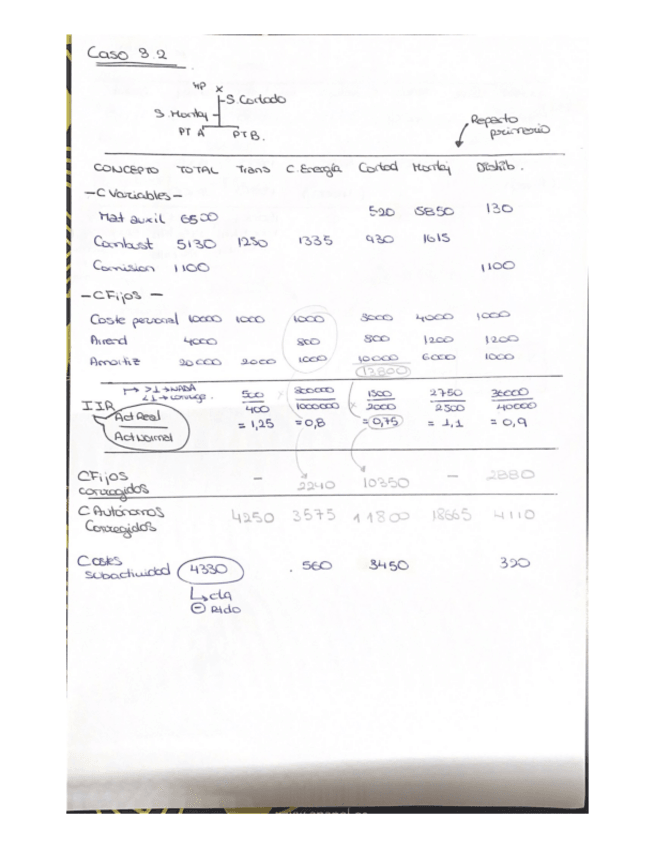 Caso 3.2
MP x
S. Cortado
S. Montaj
PT A PT B.
Reparto primario
CONCEPTO TOTAL Trans C. Energía Cortad Montaj Distrib.
- C Variables -
Mat auxil 6500 520 5850 130
Combust 5130 1250 1335 930 1615
Comision 1100 1100
- C Fijos -
Coste personal 10000 1000 1000 3000 4000 1000
Arrend 4000 800 800 1200 1200
Amortiz 20000 2000 1000 10000 6000 1000
13800
>1 → NADA
<1 → corrige.
IIR Act Real / Act Normal
500/400 = 1,25 800000/1000000 = 0,8 1500/2000 = 0,75 2750/2500 = 1,1 36000/40000 = 0,9
C Fijos corregidos - 2240 10350 - 2880
C Autónomos Corregidos 4250 3575 11800 18665 4110
Costes subactividad 4330 560 3450 320
↳ cta
⊖ Rtdo